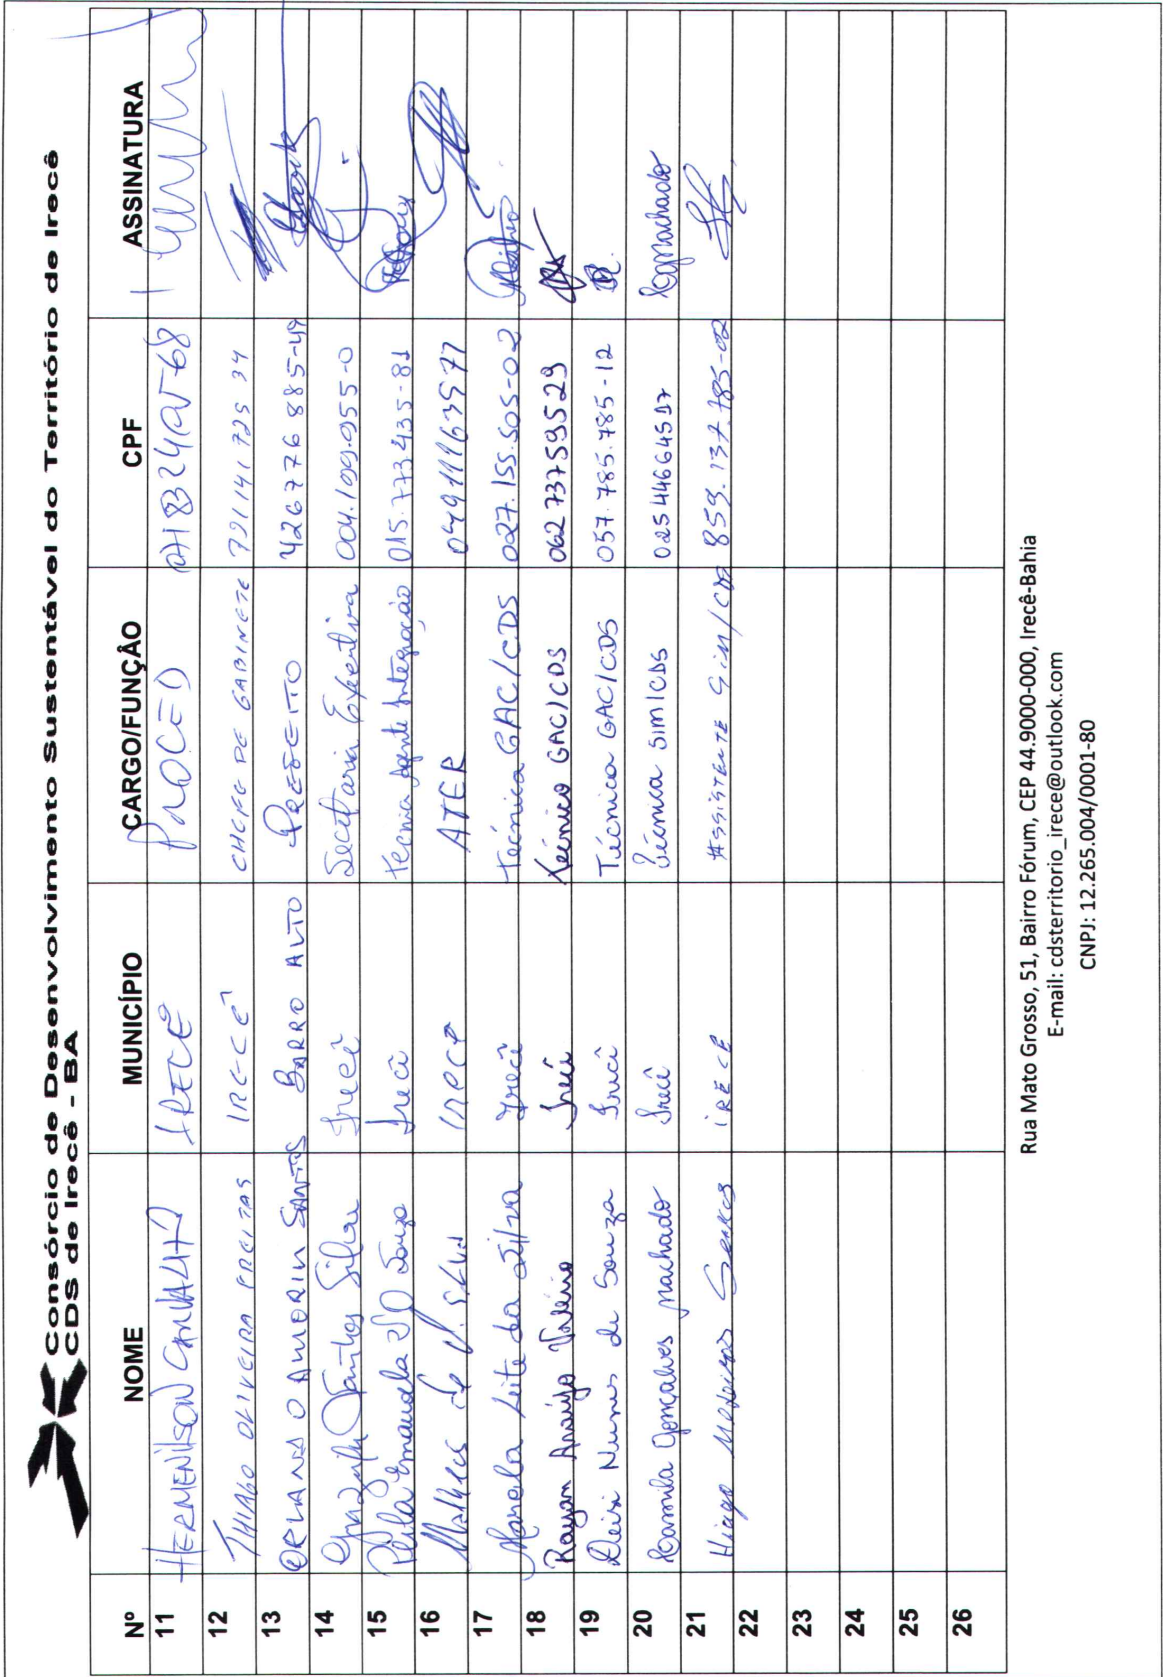 Consórcio de Desenvolvimento Sustentável do Território de Irecê
CDS de Irecê - BA
Nº NOME MUNICÍPIO CARGO/FUNÇÃO CPF ASSINATURA
11 HERMENILSON CARVALHO IRECÊ 
12 THIAGO OLIVEIRA FREITAS IRECÊ CHEFE DE GABINETE 721 141 725 34
13 ORLANDO AMORIM SANTOS BARRO ALTO PREFEITO 426776885-49
14 Santos Silva Irecê Secretaria Executiva 004.109.955-0
15 Emanuela Souza Irecê Técnica Agente Integração 015.773435-81
16 Matheus de Silva IRECE ATER 04911163577
17 Marcela Leite da Silva Irecê Técnica GAC/CDS 027.155.505-02
18 Rayan Araújo Valério Irecê Técnico GAC/CDS 06273759529
19 Deisi Nunes de Souza Irecê Técnica GAC/CDS 057.785.785-12
20 Kamila Gonçalves Machado Irecê Técnica SIM/CDS 02544664517 Kgmachado
21 Hiago IRECE ASSISTENTE SIM/CDS 859.137.785-02
22
23
24
25
26
Rua Mato Grosso, 51, Bairro Fórum, CEP 44.9000-000, Irecê-Bahia
E-mail: cdsterritorio_irece@outlook.com
CNPJ: 12.265.004/0001-80